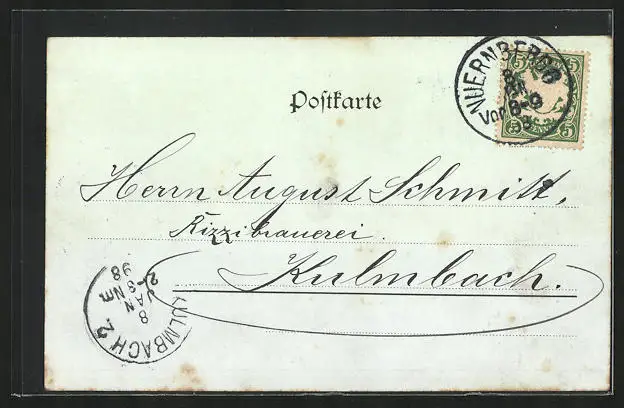 Postkarte
NUERNBERG
Vor 8-9
5 5
5 5
Herrn August Schmitt,
Rizzibrauerei.
Kulmbach.
KULMBACH 2
8
JAN
98